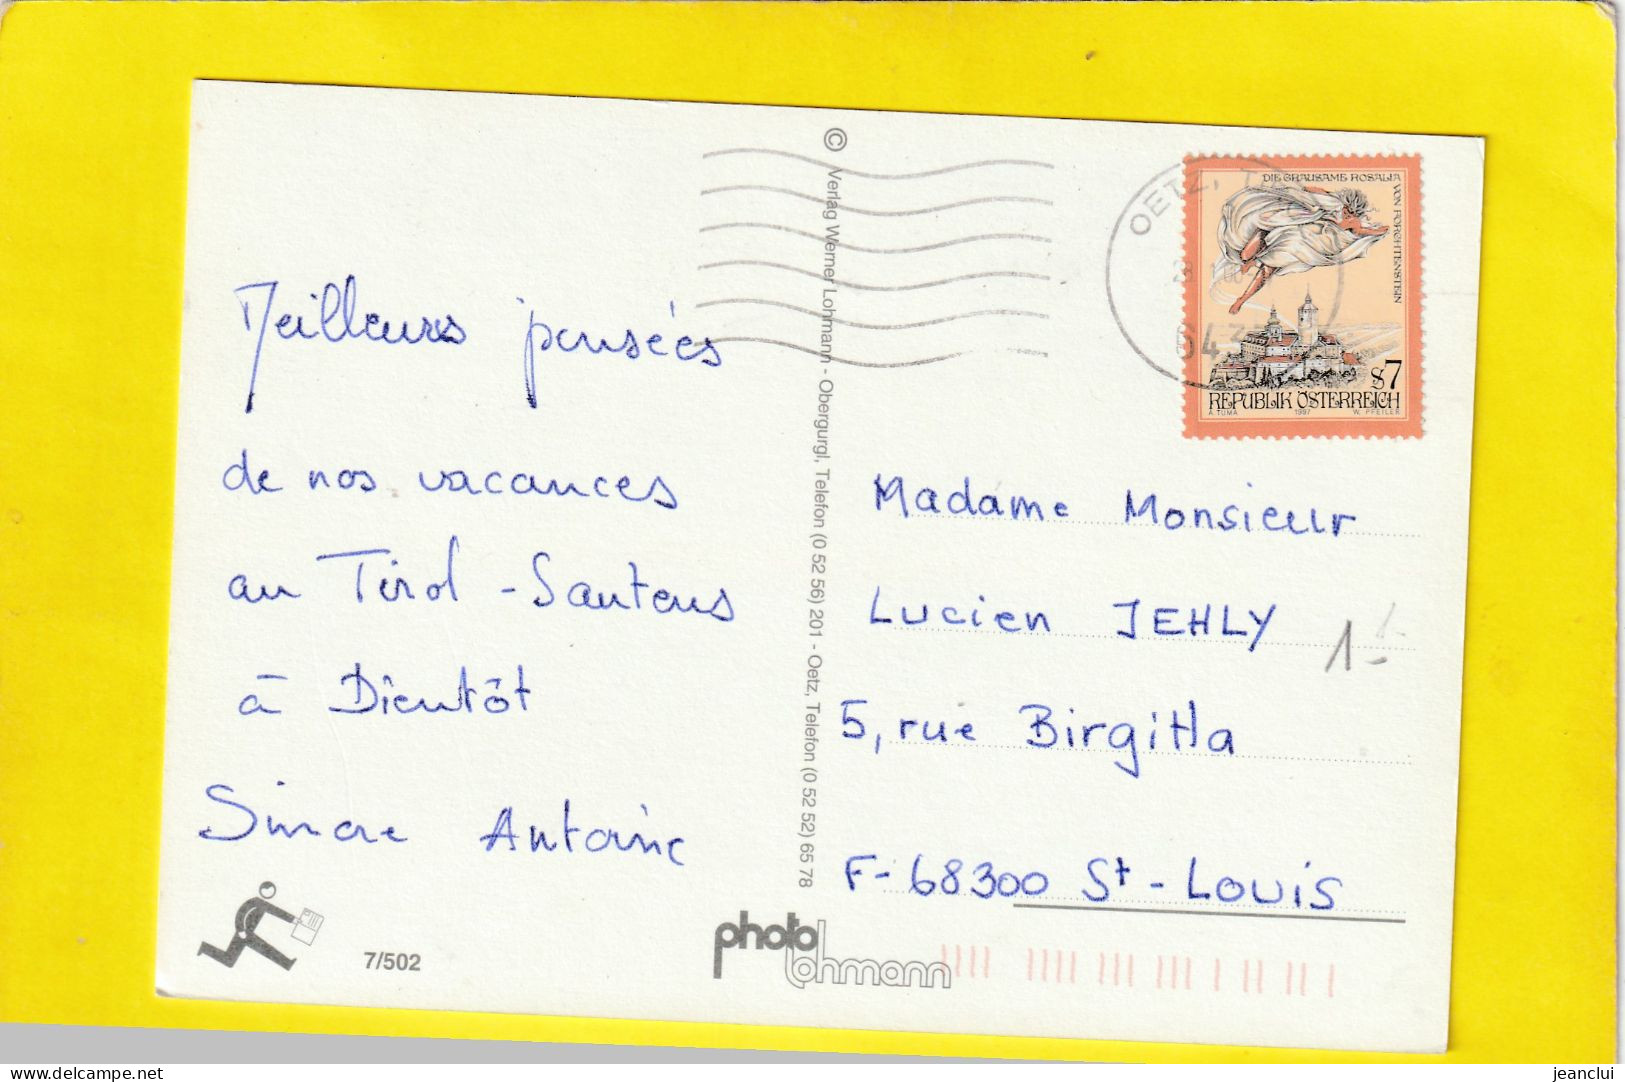 Meilleurs pensées
de nos vacances
au Tirol - Sautens
à Bientôt
Simone Antoine
7/502
© Verlag Werner Lohmann - Obergurgl, Telefon (0 52 56) 201 - Oetz, Telefon (0 52 52) 65 78
photo lohmann
OETZ, TI
DIE GRAUSAME ROSALIA
VON FORCHTENSTEIN
S7
REPUBLIK ÖSTERREICH
A. TUMA 1997 W. PFEILER
Madame Monsieur
Lucien JEHLY
1-
5, rue Birgitta
F-68300 St-LOUIS
delcampe.net
jeanclui